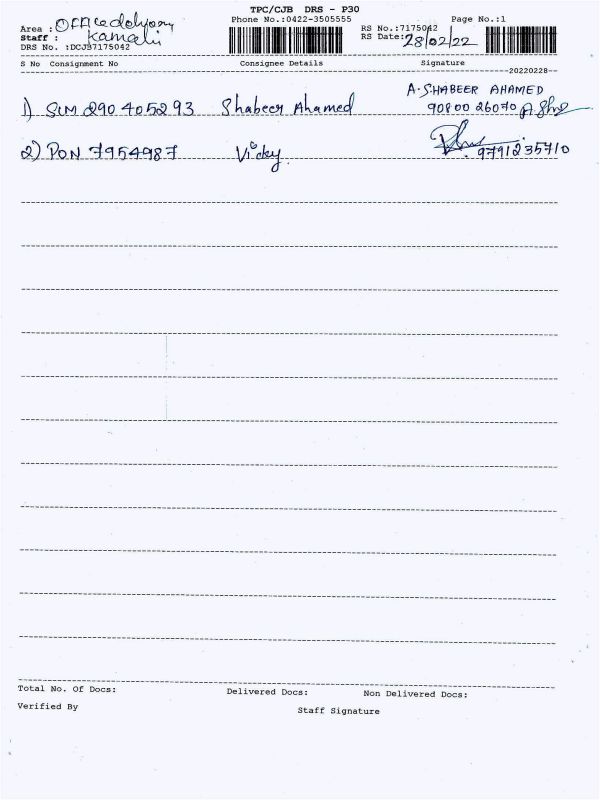 TPC/CJB DRS - P30
Area : Office delivery Phone No.:0422-3505555 RS No.:7175042 Page No.:1
Staff : Kamali RS Date: 28/02/22
DRS No. :DCJB7175042
S No Consignment No Consignee Details Signature
20220228
A. SHABEER AHAMED
1) SLM 290405293 Shabeer Ahamed 90800 26070
2) PON 7954987 Vicky 9791235710
Total No. Of Docs: Delivered Docs: Non Delivered Docs:
Verified By Staff Signature